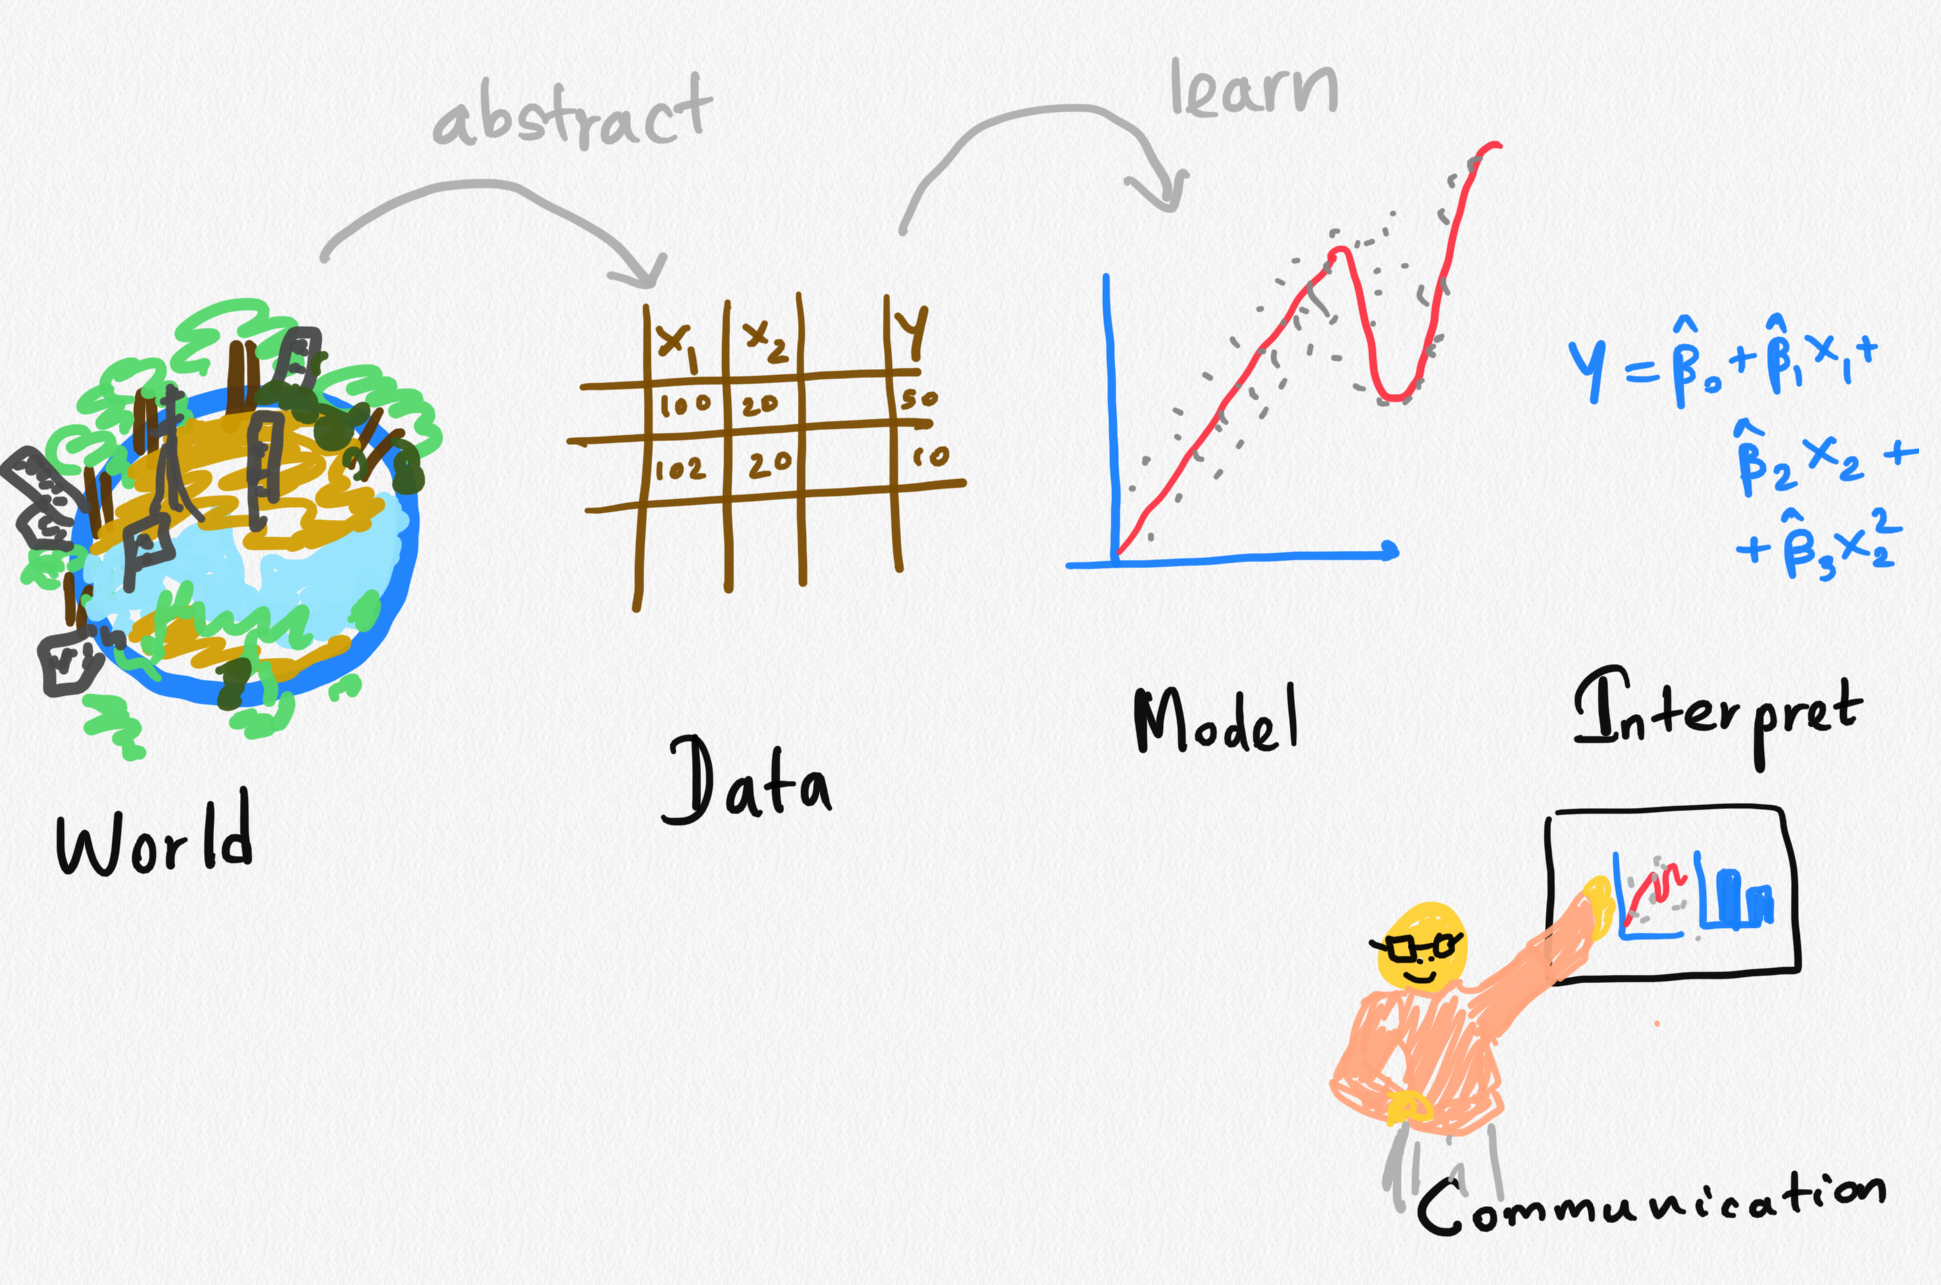 abstract
learn
X₁ X₂ Y
100 20 50
102 20 10
Y = β̂₀ + β̂₁ X₁ +
β̂₂ X₂ +
+ β̂₃ X₂²
World
Data
Model
Interpret
Communication